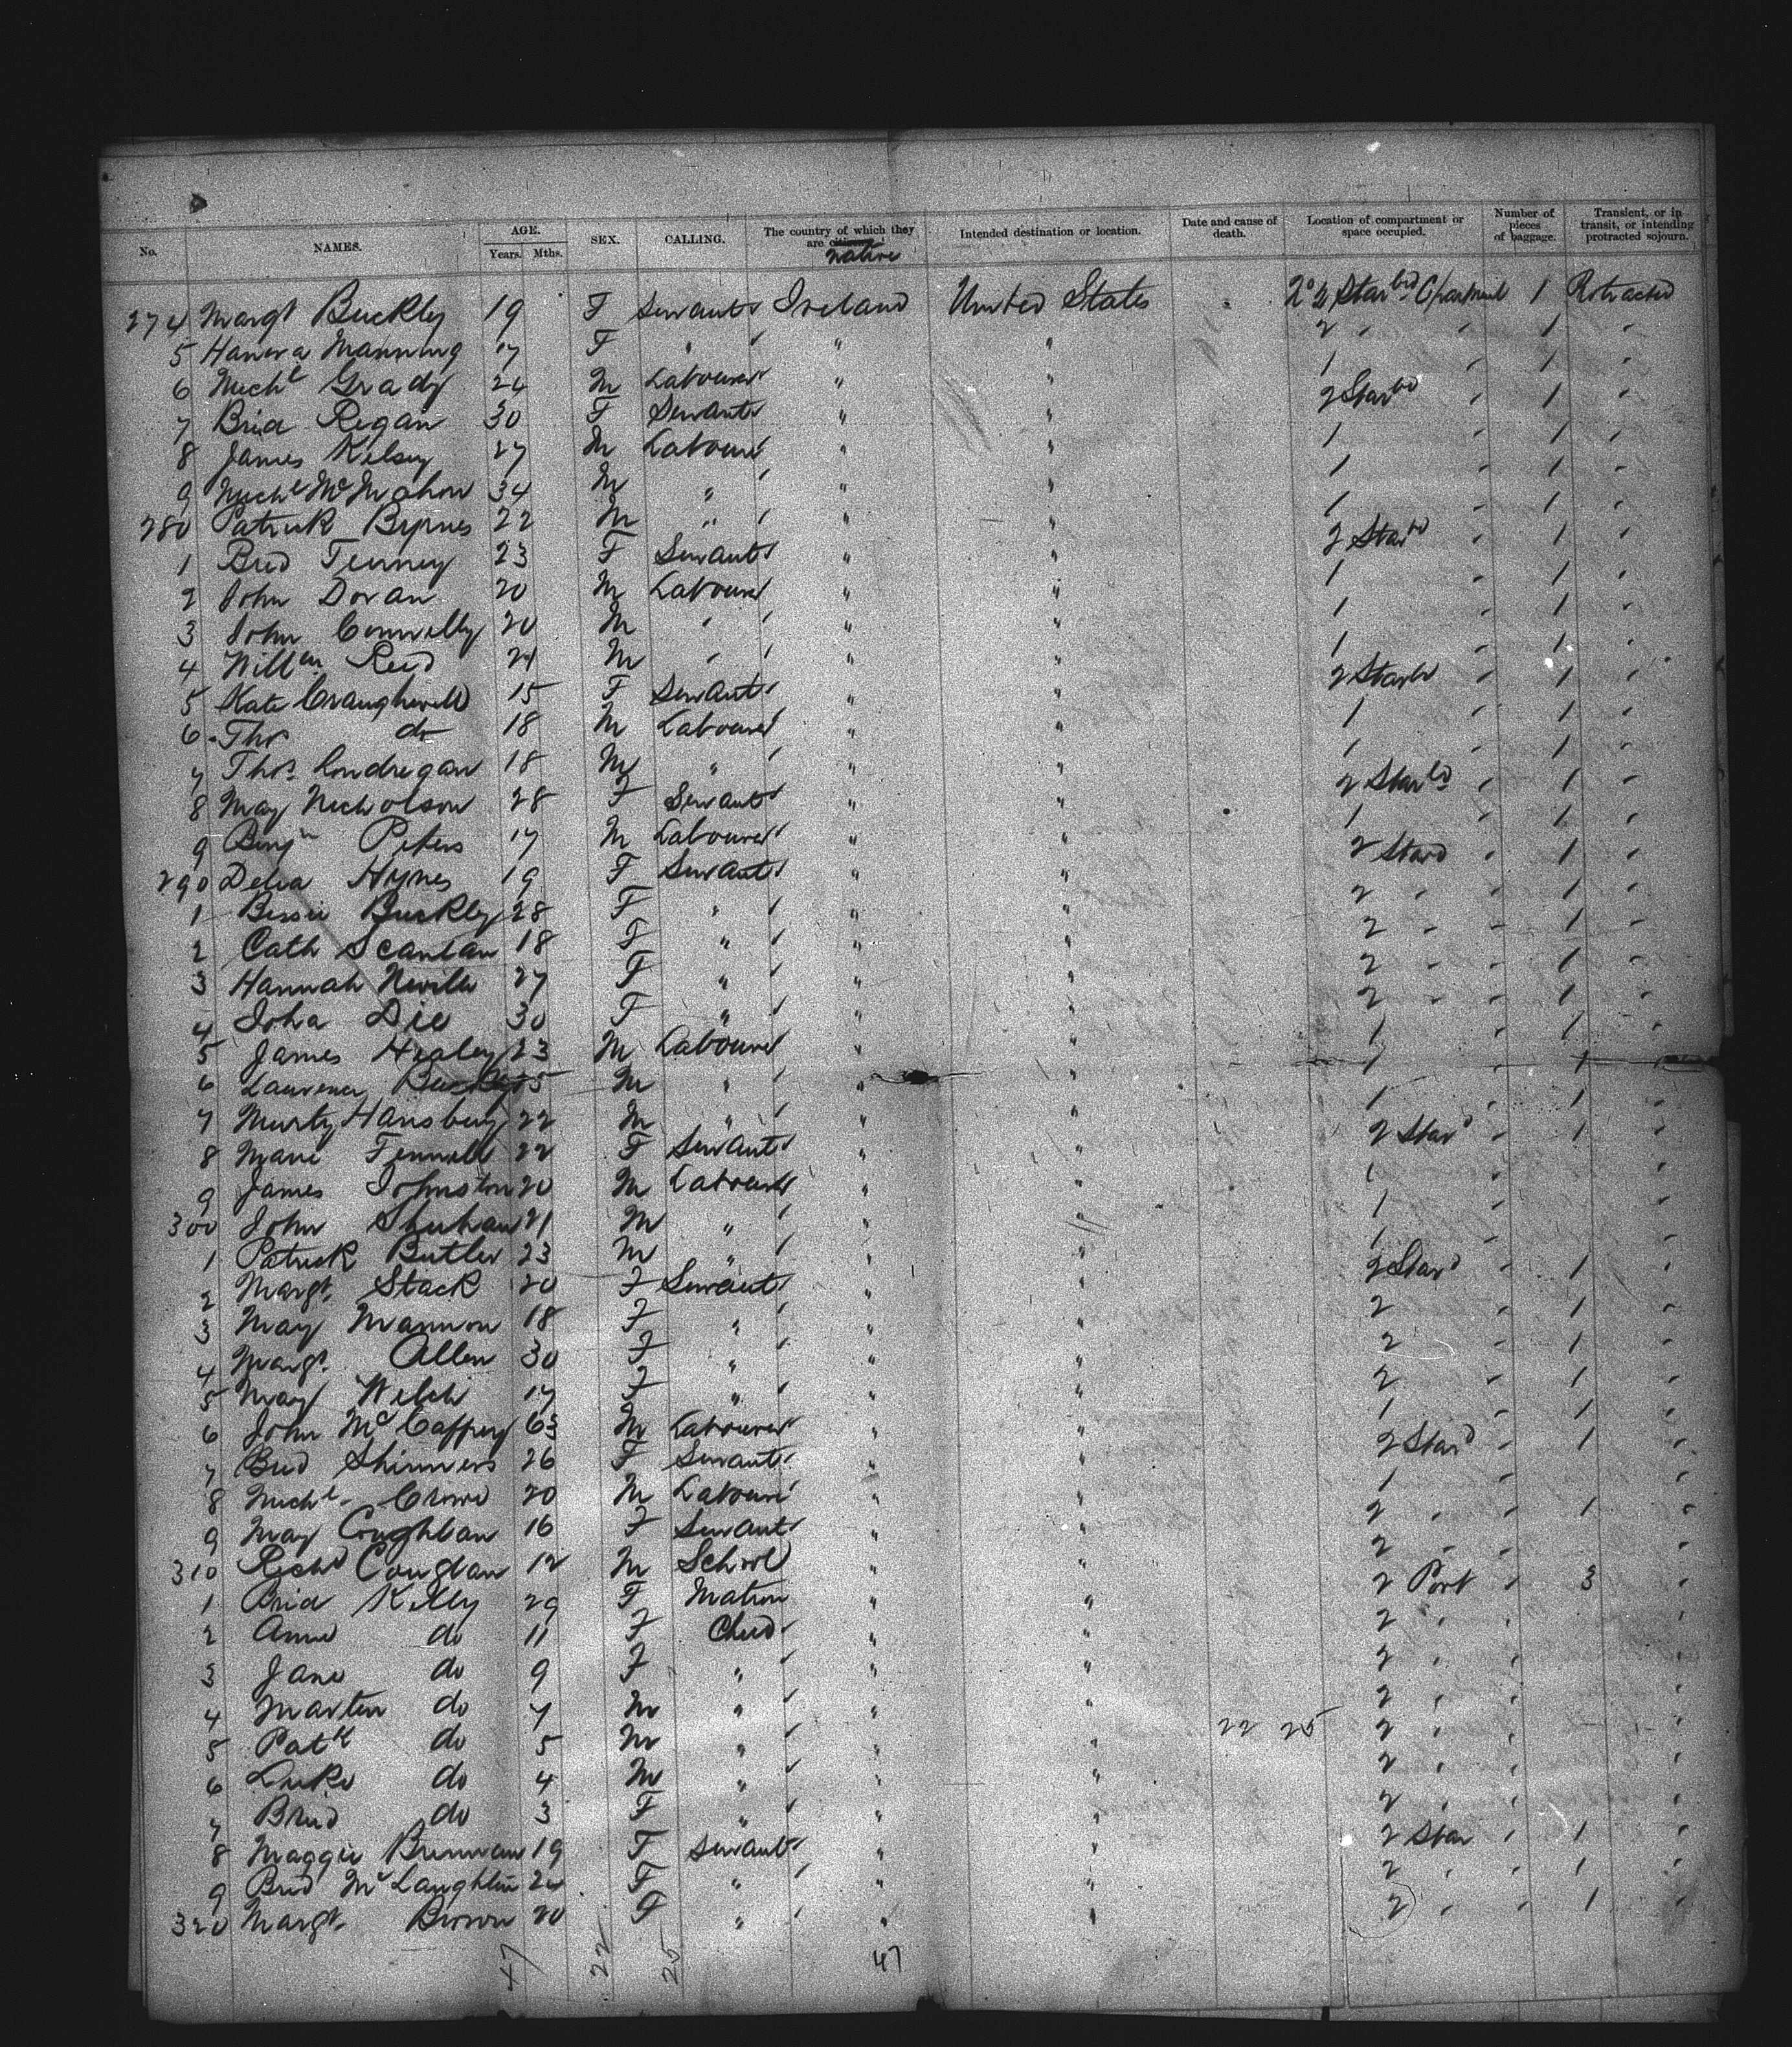 No. NAMES. AGE. Years. Mths. SEX. CALLING. The country of which they are citizens native Intended destination or location. Date and cause of death. Location of compartment or space occupied. Number of pieces of baggage. Transient, or in transit, or intending protracted sojourn.
274 Margt Buckley 19 F Servant Ireland United States 2 Starbd 1
5 Hanora Manning 17 F " " " 2 " " 1 "
6 Michl Grady 24 M Labourer " " 1 " 1 "
7 Brid Regan 30 F Servant " " 2 Starbd " 1 "
8 James Kelsey 27 M Labourer " " 1 1 "
9 Michl McMahon 34 M " " " 1 " 1 "
280 Patrick Byrnes 22 M " " " 1 " 1 "
1 Brid Feeney 23 F Servant " " 2 Starbd " 1 "
2 John Doran 20 M Labourer " " 1 " 1 "
3 John Connelly 20 M " " " 1 " 1 "
4 Willm Reed 21 M " " " 1 1 "
5 Kate Craughwell 15 F Servant " " 2 Starbd " 1 "
6 Thos do 18 M Labourer " " 1 " 1 "
7 Thos Londregan 18 M " " " 1 " 1 "
8 May Nicholson 28 F Servant " " 2 Starbd " 1 "
9 Benjn Peters 17 M Labourer " " 1 " 1 "
290 Delia Hynes 19 F Servant " " 2 Starbd " 1 "
1 Bessie Buckley 28 F " " " 2 " " 1 "
2 Cath Scanlan 18 F " " " 2 " " 1 "
3 Hannah Neville 27 F " " " 2 " " 1 "
4 Die 30 F " " " 2 " " 1 "
5 James Healey 23 M Labourer " " 1 " 1 "
6 Laurence M " " " 1 " 1 "
7 Murty Hansbury 22 M " " " 1 " 1 "
8 Marie Fennell 22 F Servant " " 2 Starbd " 1 "
9 James Johnston 20 M Labourer " " 1 " "
300 John Sheehan 21 M " " " 1 " "
1 Patrick Butler 23 M " " " 1 " "
2 Margt Stack 20 F Servant " " 2 Starbd " 1 "
3 May Mannion 18 F " " " 2 " 1 "
4 Margt Allen 30 F " " " 2 " 1 "
5 May Welch 17 F " " " 2 " 1 "
6 John McCaffery 63 M Labourer " " 1 " 1 "
7 Brid Shinners 26 F Servant " " 2 Starbd " 1 "
8 Michl Crowe 20 M Labourer " " 1 " "
9 May Coughlan 16 F Servant " " 2 " " 1 "
310 Richd Couglan 12 M School " " 2 " " "
1 Brid Kelly 29 F Matron " " 2 Port " 3 "
2 Annie do 11 F Child " " 2 " " "
3 Jane do 9 F " " " 2 " " "
4 Marten do 7 M " " " 2 " " "
5 Patk do 5 M " " " 22 25 2 " " "
6 Luke do 4 M " " " 2 " " "
7 Brid do 3 F " " " 2 " " "
8 Maggie Brennan 19 F Servant " " 2 Star " 1 "
9 Brid McLaughlin 24 F " " " 2 " " 1 "
320 Margt Brown 20 F " " " 2 " " 1 "
47 22 25 47